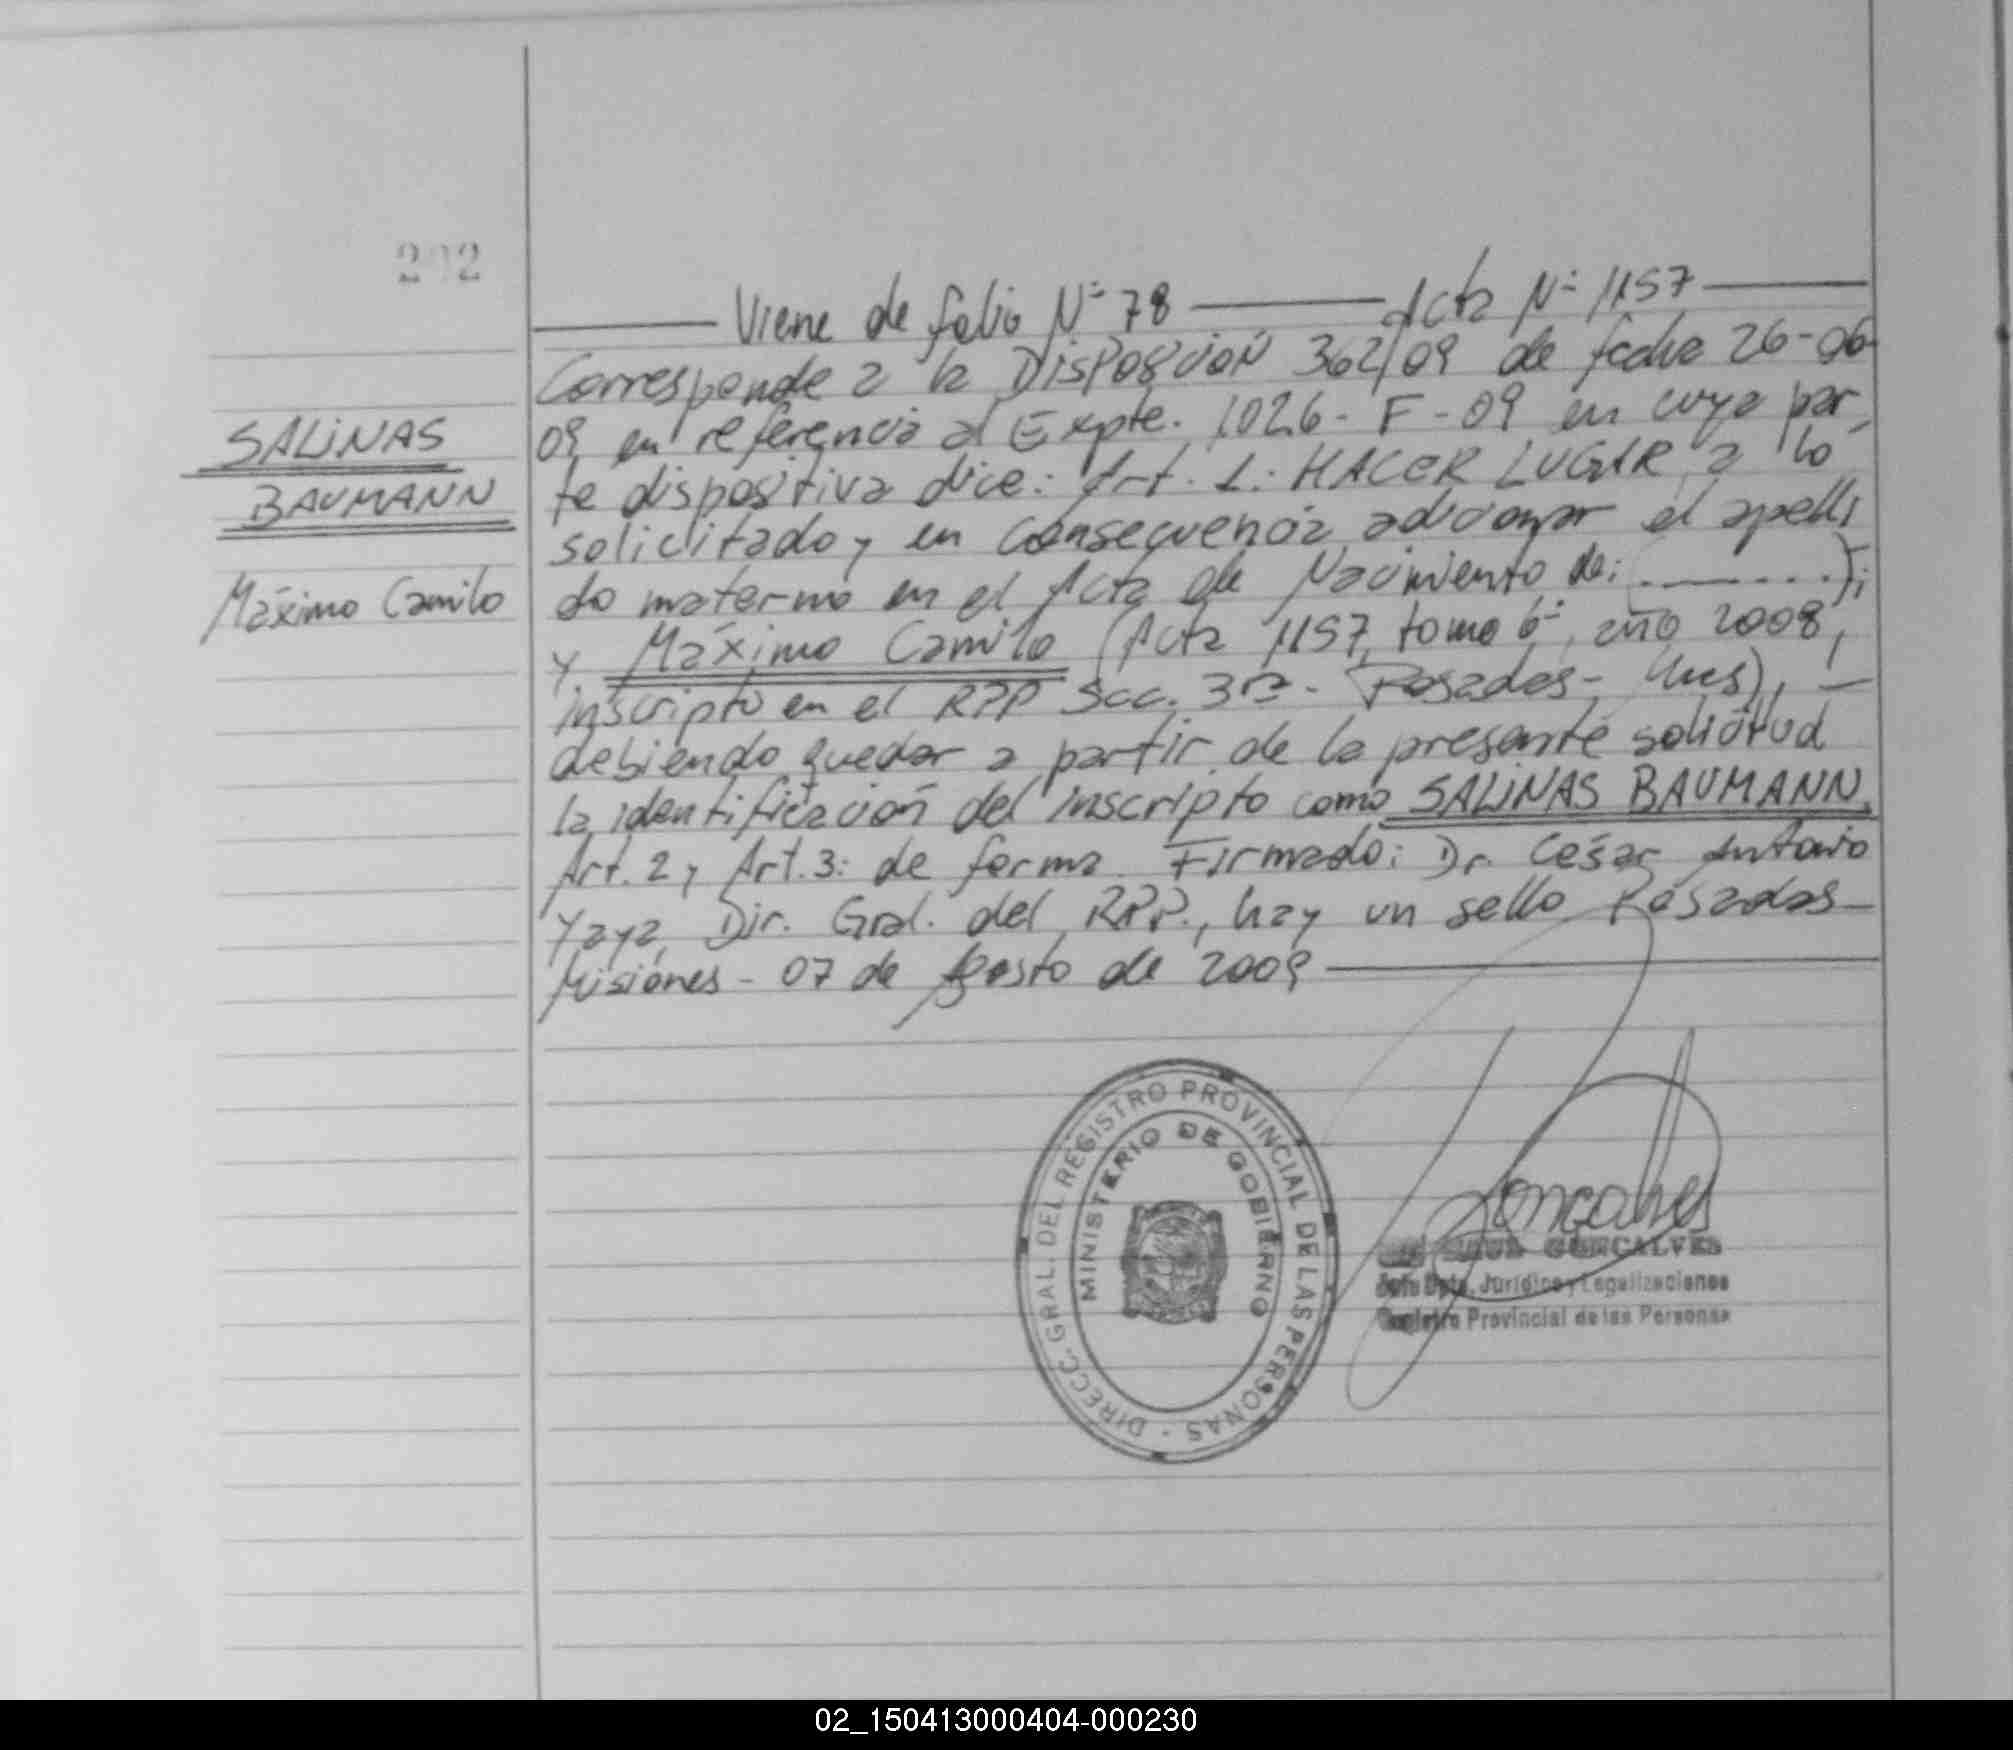 202
Viene de folio Nº 78 Acta Nº 1157
Corresponde a la Disposición 362/09 de fecha 26-06-
SALINAS
09 en referencia al Expte. 1026-F-09 en cuya par
te dispositiva dice: Art. 1: HACER LUGAR a lo
BAUMANN
solicitado y en consecuencia adicionar el apelli
Máximo Camilo
do materno en el Acta de Nacimiento de: (.......);
y Máximo Camilo (Acta 1157, tomo 6º, año 2008,
inscripto en el RPP Secc. 3ª - Posadas - Mnes),
debiendo quedar a partir de la presente solicitud
la identificación del inscripto como SALINAS BAUMANN.
Art. 2 y Art. 3: de forma. Firmado: Dr. César Antonio
Yaya, Dir. Gral. del RPP., hay un sello Posadas
Misiones - 07 de Agosto de 2009
DIRECC. GRAL. DEL REGISTRO PROVINCIAL DE LAS PERSONAS -
MINISTERIO DE GOBIERNO
Goncalves
GONCALVES
Jefe Dpto. Jurídico y Legalizaciones
Registro Provincial de las Personas
02_150413000404-000230